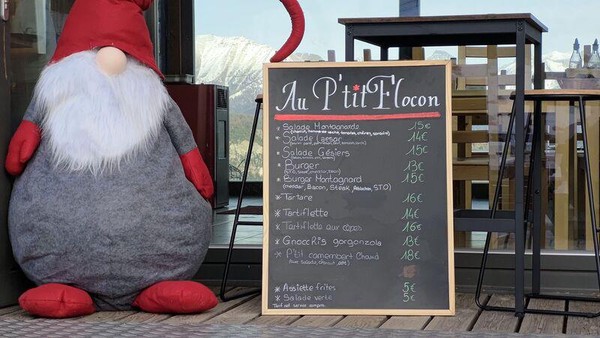 Au P'tit Flocon
* Salade Montagnards 15€
* Salade Cesar 14€
* Salade Gésiers 15€
* Burger 13€
* Burger Montagnard 15€
Bacon, Steak
* Tartare 16€
* Tartiflette 14€
* Tartiflette aux cèpes 16€
* Gnocchis gorgonzola 13€
* P'tit camembert Chaud 18€
* Assiette frites 5€
* Salade verte 5€
Tarif net service compris